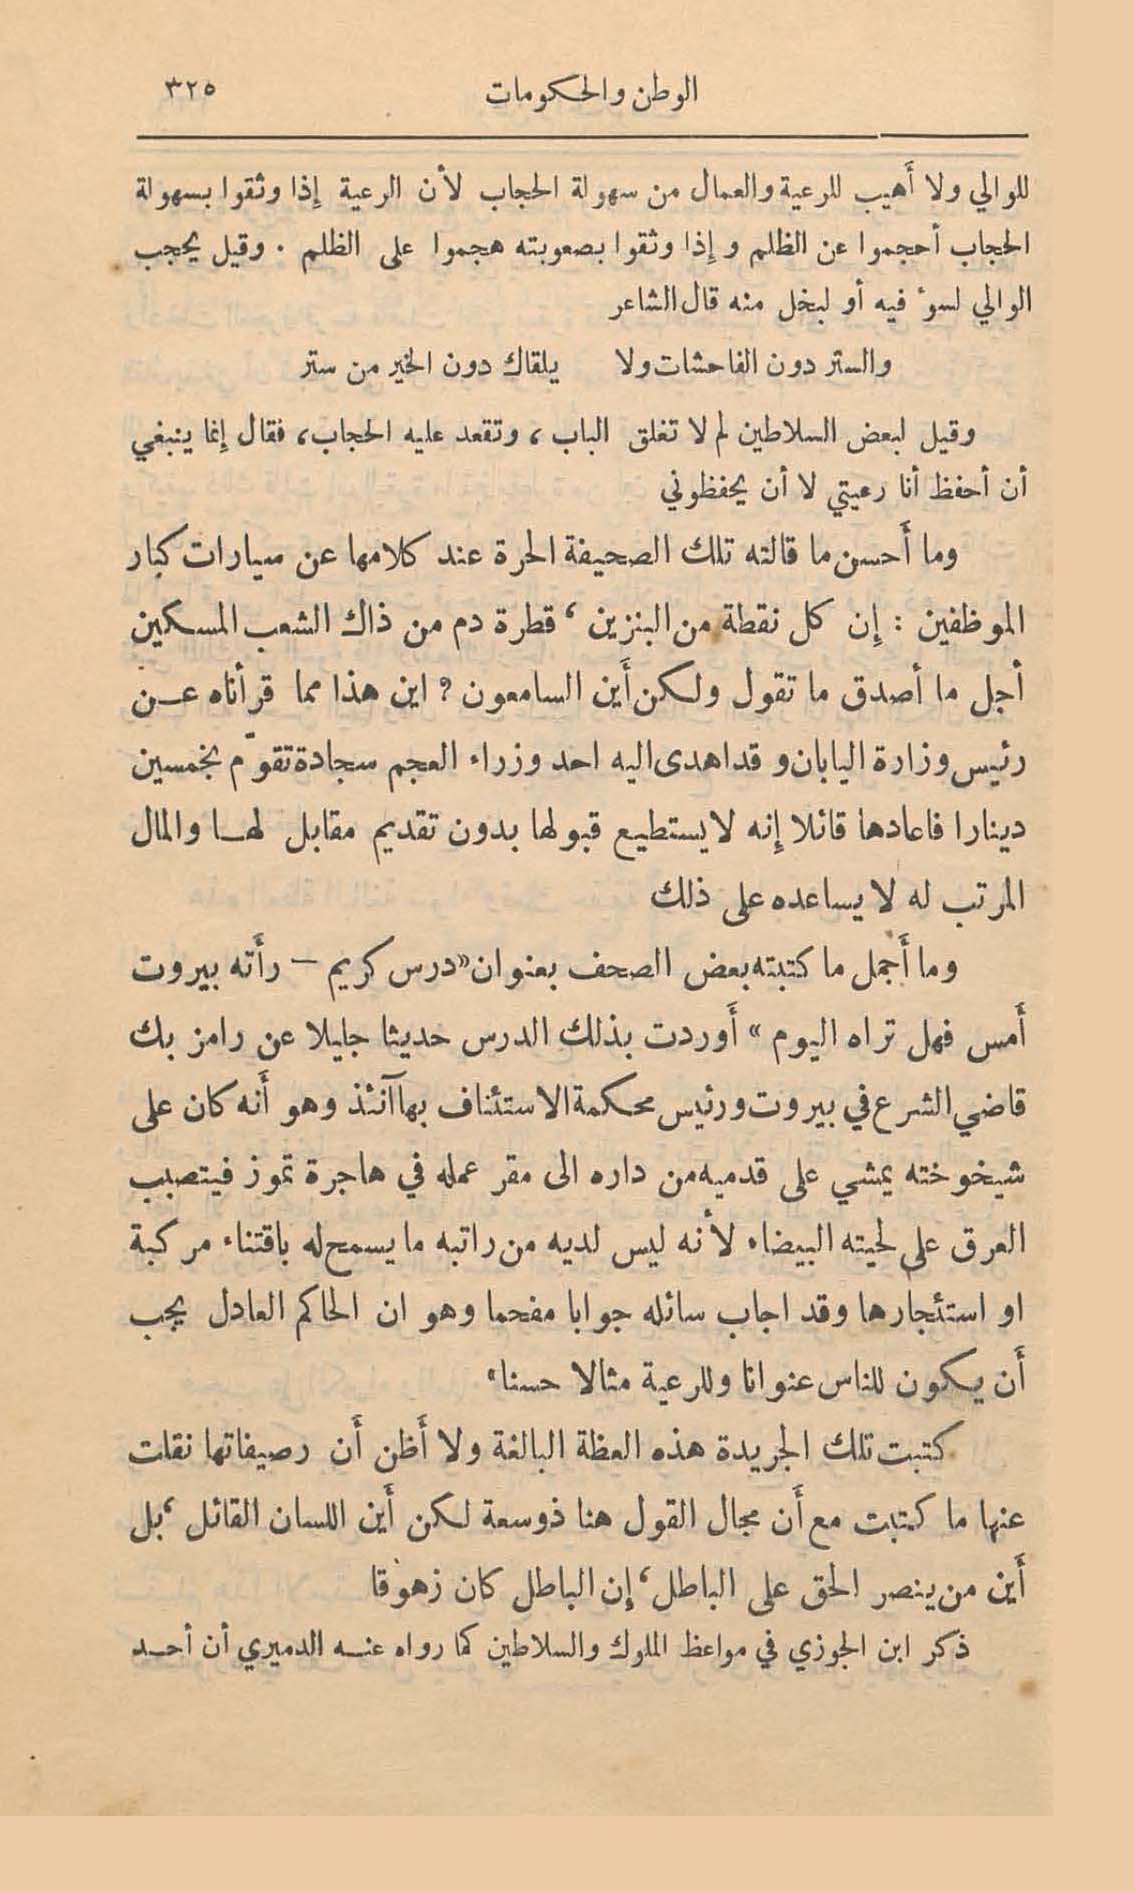 الوطن والحكومات ٣٢٥
للوالي ولا أهيب للرعية والعمال من سهولة الحجاب لأن الرعية إذا وثقوا بسهولة
الحجاب أحجموا عن الظلم و إذا وثقوا بصعوبته هجموا على الظلم . وقيل يحجب
الوالي لسوء فيه أو لبخل منه قال الشاعر
والستر دون الفاحشات ولا يلقاك دون الخير من ستر
وقيل لبعض السلاطين لم لا تغلق الباب ، وتقعد عليه الحجاب، فقال إنما ينبغي
أن أحفظ أنا رعيتي لا أن يحفظوني
وما أحسن ما قالته تلك الصحيفة الحرة عند كلامها عن سيارات كبار
الموظفين : إن كل نقطة من البنزين ، قطرة دم من ذاك الشعب المسكين
أجل ما أصدق ما تقول ولكن أين السامعون ؟ اين هذا مما قرأناه عن
رئيس وزارة اليابان و قد اهدى اليه احد وزراء العجم سجادة تقوّم بخمسين
دينارا فاعادها قائلا إنه لا يستطيع قبولها بدون تقديم مقابل لها والمال
المرتب له لا يساعده على ذلك
وما أجمل ما كتبته بعض الصحف بعنوان «درس كريم — رأته بيروت
أمس فهل تراه اليوم » أوردت بذلك الدرس حديثا جليلا عن رامز بك
قاضي الشرع في بيروت ورئيس محكمة الاستئناف بها آنئذ وهو أنه كان على
شيخوخته يمشي على قدميه من داره الى مقر عمله في هاجرة تموز فيتصبب
العرق على لحيته البيضاء لأنه ليس لديه من راتبه ما يسمح له باقتناء مركبة
او استئجارها وقد اجاب سائله جوابا مفحما وهو ان الحاكم العادل يجب
أن يكون للناس عنوانا وللرعية مثالا حسنا،
كتبت تلك الجريدة هذه العظة البالغة ولا أظن أن رصيفاتها نقلت
عنها ما كتبت مع أن مجال القول هنا ذو سعة لكن أين اللسان القائل ، بل
أين من ينصر الحق على الباطل ، إن الباطل كان زهوقا
ذكر ابن الجوزي في مواعظ الملوك والسلاطين كما رواه عنه الدميري أن أحد